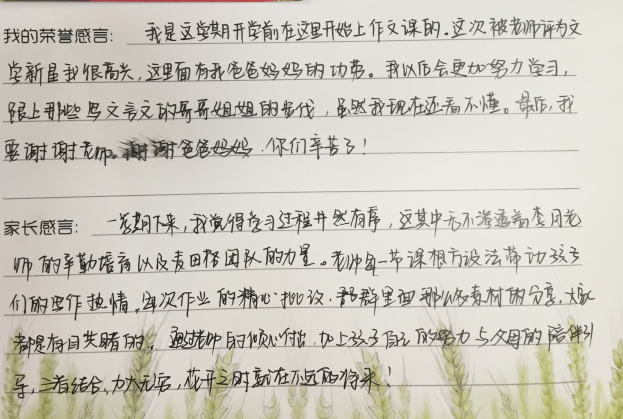 我的荣誉感言: 我是这学期开学前在这里开始上作文课的。这次被老师评为文
学新星我很高兴,这里面有我爸爸妈妈的功劳。我以后会更加努力学习,
跟上那些写文言文的哥哥姐姐的步伐,虽然我现在还看不懂。最后,我
要谢谢老师。谢谢爸爸妈妈,你们辛苦了!
家长感言: 一学期下来,我觉得学习过程井然有序,这其中无不渗透着李月老
师的辛勤培育以及麦田格团队的力量。老师每一节课想方设法带动孩子
们的写作热情,每次作业的精心批改,群里面那么多素材的分享,大家
都是有目共睹的。通过老师的倾心付出,加上孩子自己的努力与父母的陪伴引
导,三者结合,力大无穷,花开之时就在不远的将来!